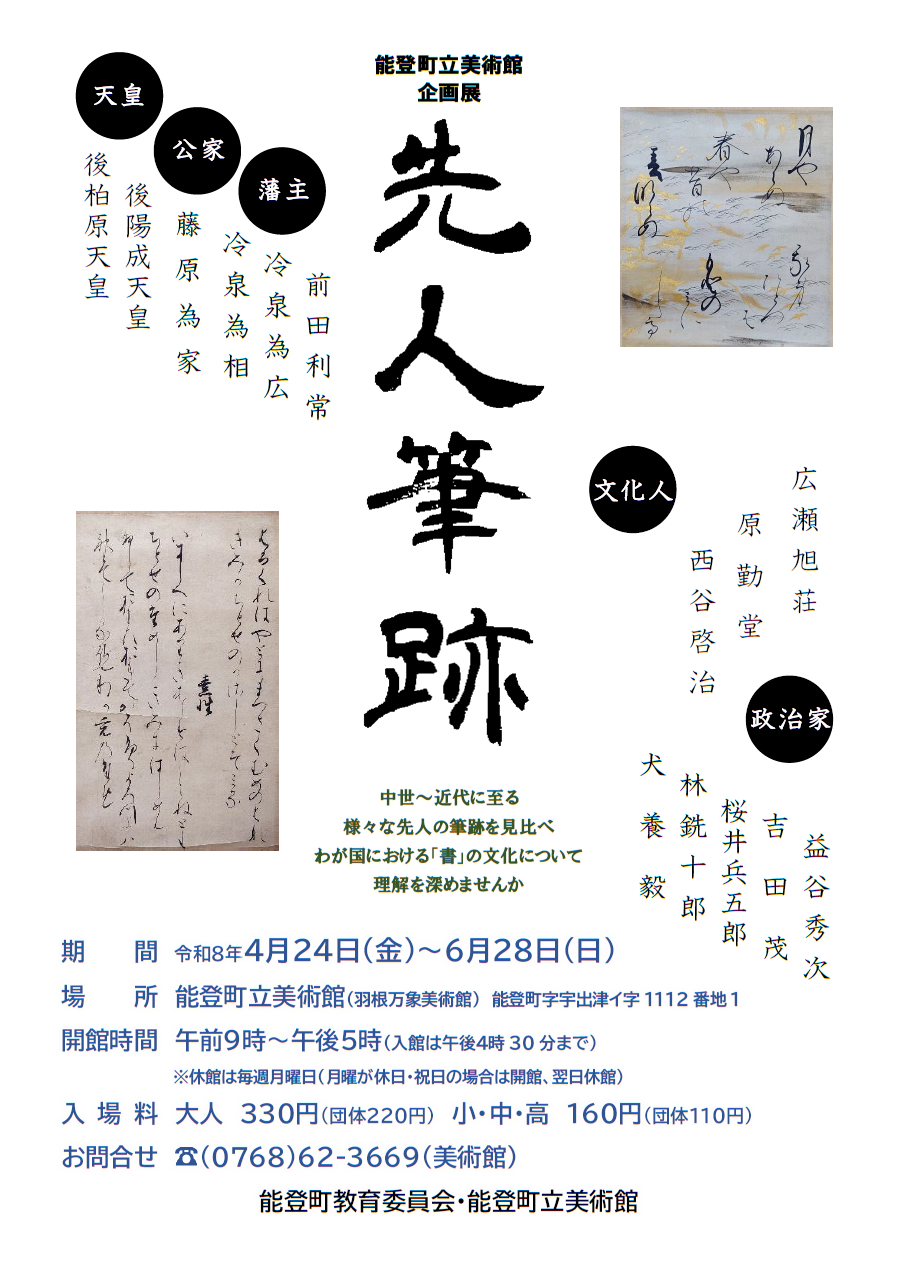 能登町立美術館
企画展
先人筆跡
天皇
後柏原天皇
後陽成天皇
公家
藤原為家
冷泉為相
冷泉為広
藩主
前田利常
文化人
広瀬旭荘
原勤堂
西谷啓治
政治家
益谷秀次
吉田茂
桜井兵五郎
林銑十郎
犬養毅
中世～近代に至る
様々な先人の筆跡を見比べ
わが国における「書」の文化について
理解を深めませんか
期間 令和8年4月24日(金)～6月28日(日)
場所 能登町立美術館(羽根万象美術館) 能登町字宇出津イ字1112番地1
開館時間 午前9時～午後5時(入館は午後4時30分まで)
※休館は毎週月曜日(月曜が休日・祝日の場合は開館、翌日休館)
入場料 大人 330円(団体220円) 小・中・高 160円(団体110円)
お問合せ ☎(0768)62-3669(美術館)
能登町教育委員会・能登町立美術館